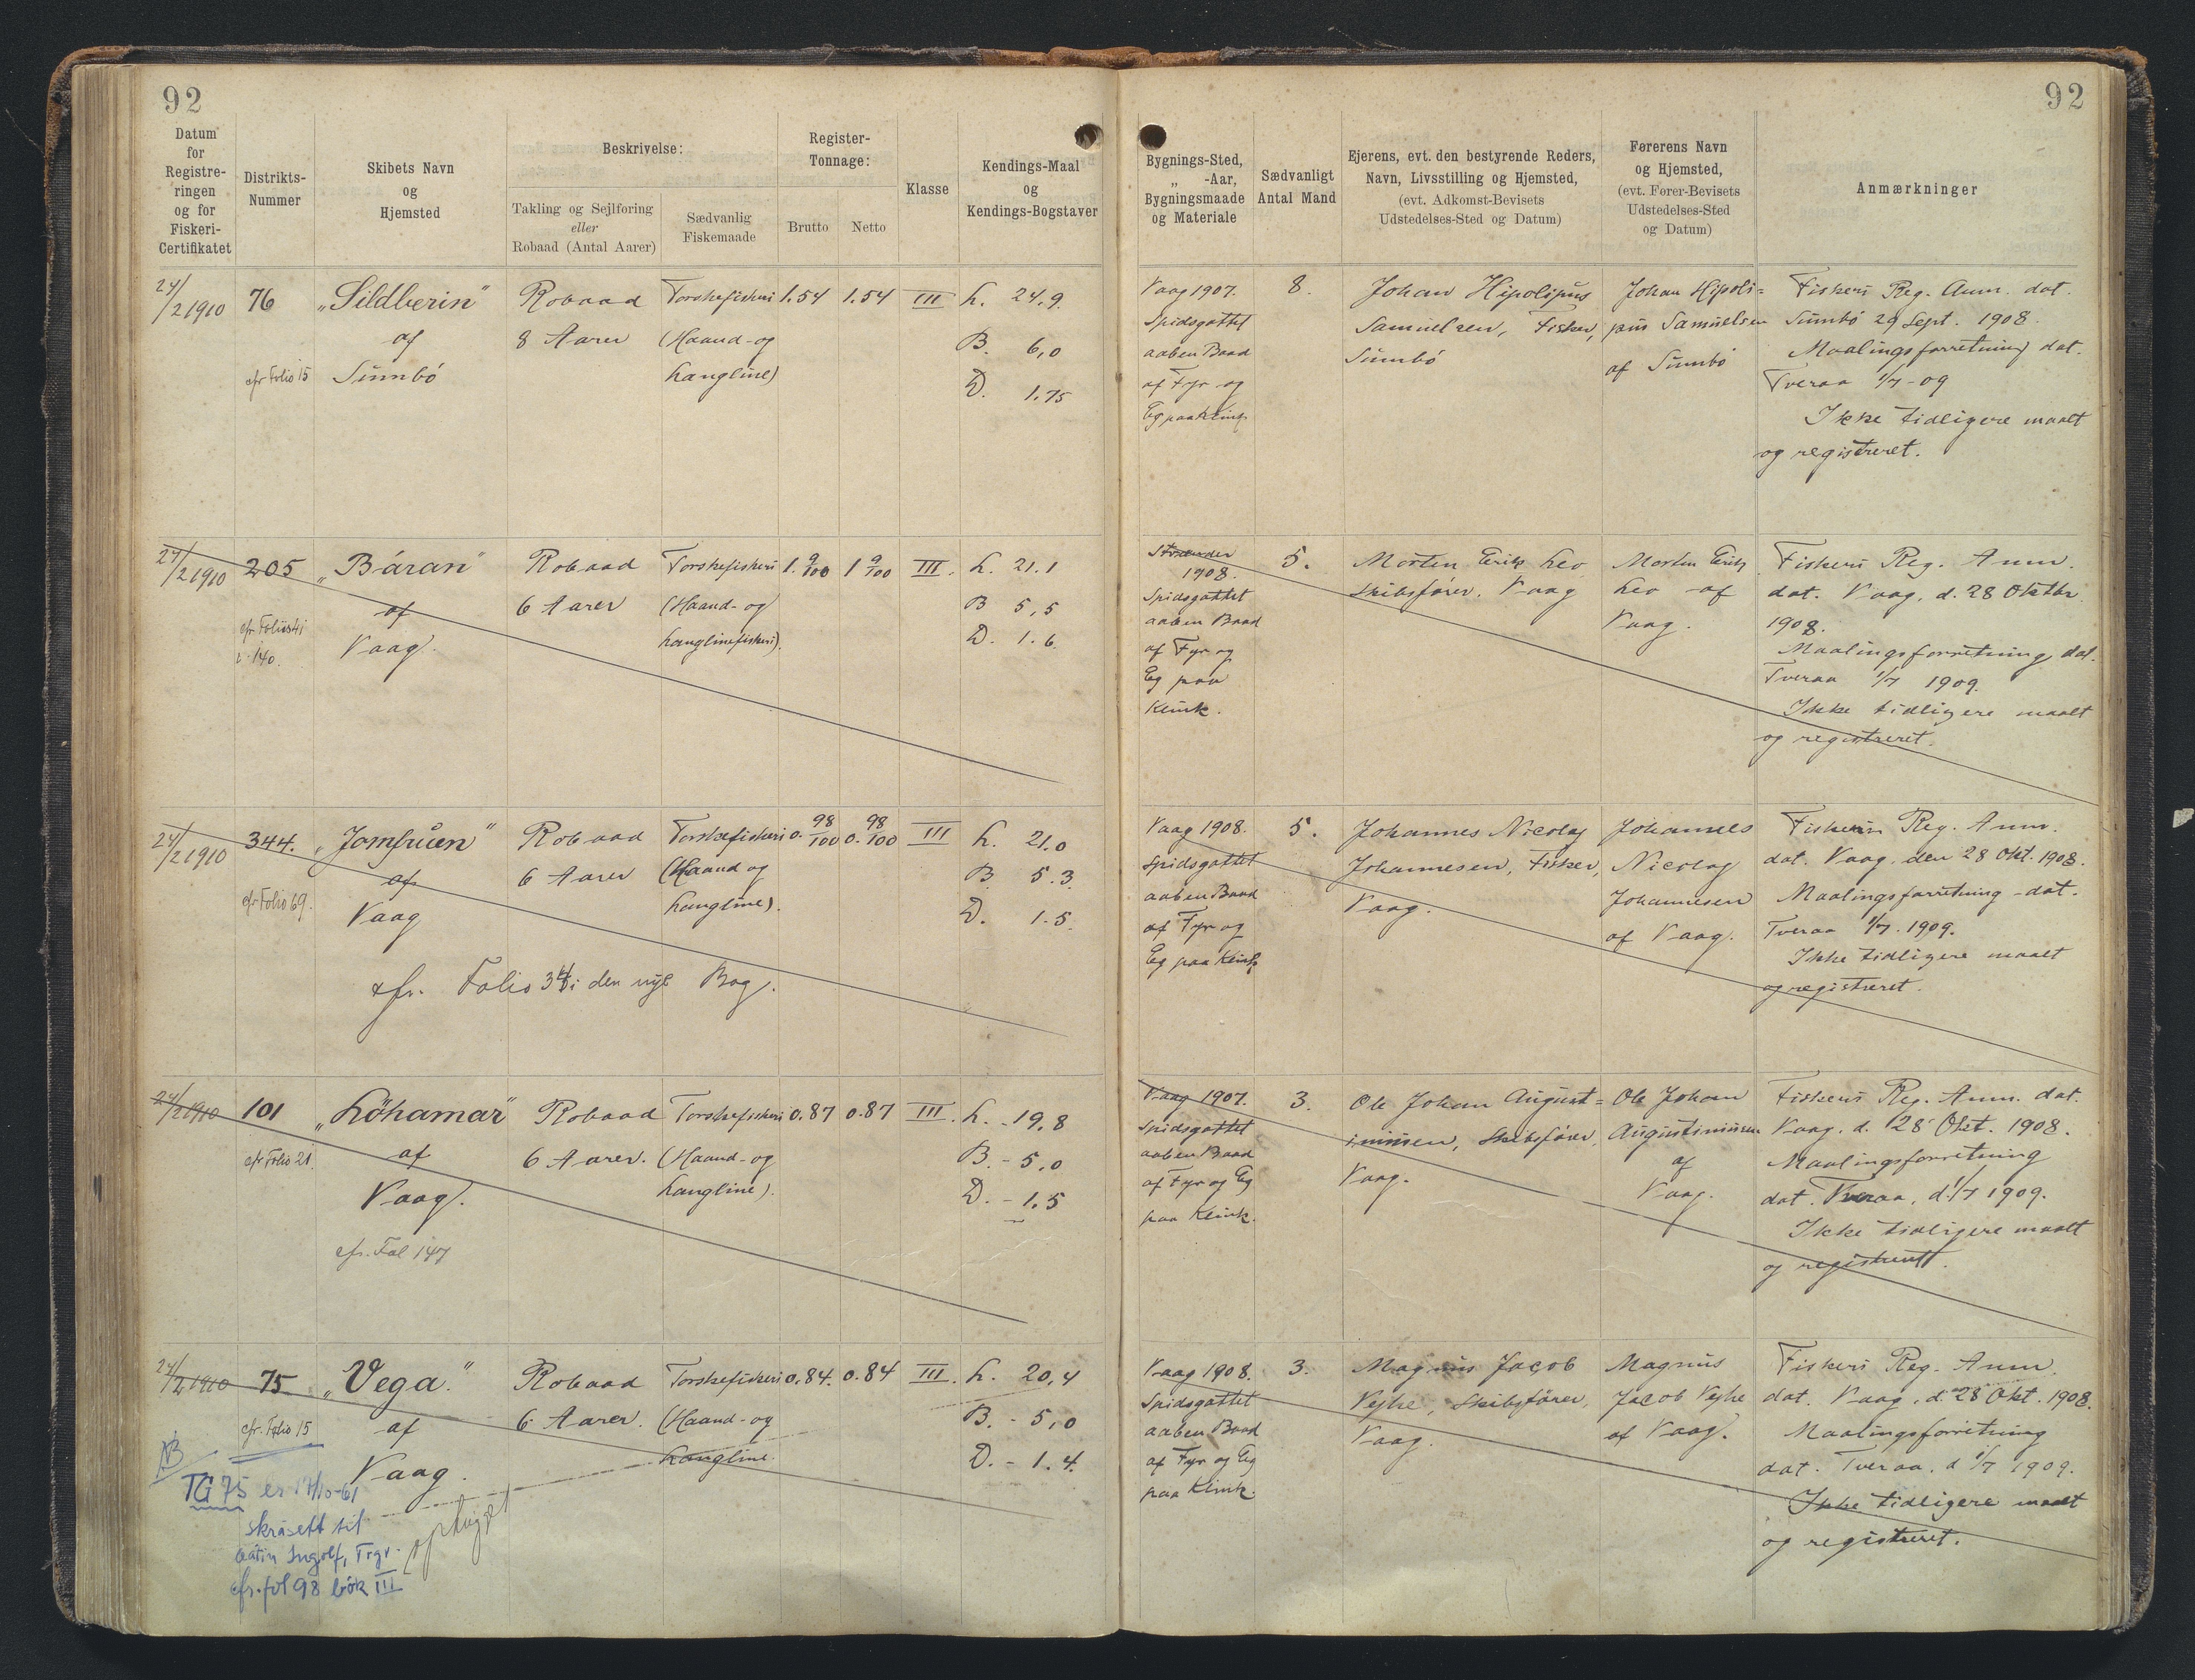 92
92
Datum
for
Registre-
ringen
og for
Fiskeri-
Certifikatet
Distrikts-
Nummer
Skibets Navn
og
Hjemsted
Beskrivelse:
Takling og Sejlføring
eller
Robaad (Antal Aarer)
Sædvanlig
Fiskemaade
Register-
Tonnage:
Brutto
Netto
Klasse
Kendings-Maal
og
Kendings-Bogstaver
Bygnings-Sted,
„ -Aar,
Bygningsmaade
og Materiale
Sædvanligt
Antal Mand
Ejerens, evt. den bestyrende Reders,
Navn, Livsstilling og Hjemsted,
(evt. Adkomst-Bevisets
Udstedelses-Sted og Datum)
Førerens Navn
og Hjemsted,
(evt. Fører-Bevisets
Udstedelses-Sted
og Datum)
Anmærkninger
24/2 1910
76
cfr Folio 15
„Sildberin"
af
Sumbó
Robaad
8 Aarer
Torskefiskeri
(Haand- og
Langline)
1.54
1.54
III
L. 24.9.
B. 6,0
D. 1.75
Vaag 1907.
Spidsgattet
aaben Baad
af Fyr og
Eg paa Klink
8.
Johan Hipolipus
Samuelsen, Fisker,
Sumbó
Johan Hipoli=
pus Samuelsen
af Sumbó
Fiskeri Reg. Anm. dat.
Sumbó 29 Sept. 1908.
Maalingsforretning dat.
Tveraa 1/7 - 09
Ikke tidligere maalt
og registreret.
24/2 1910
205
„Báran"
af
Vaag.
Robaad
6 Aarer
Torskefiskeri
(Haand- og
Langlinefiskeri).
1. 9/100
1 9/100
III.
L. 21.1
B 5,5
D. 1.6
1908.
Spidsgattet
aaben Baad
af Fyr og
Eg paa
Klink.
5.
Morten Erik Leo
Skibsfører. Vaag
Morten Erik
Leo af
Vaag.
Fiskeri Reg. Anm.
dat. Vaag, d. 28 Oktbr
1908.
Maalingsforretning dat.
Tveraa 1/7 1909.
Ikke tidligere maalt
og registreret.
24/2 1910
344.
cfr Folio 69.
„Jomfruen"
af
Vaag
Robaad
6 Aarer
Torskefiskeri
(Haand og
Langline).
0. 98/100
0. 98/100
III
L. 21.0
B 5.3
D. 1.5.
cfr. Folio i den nye Bog.
Vaag 1908.
Spidsgattet
aaben Baad
af Fyr og
Eg paa Klink
5.
Johannes Nicolaj
Johannesen, Fisker,
Vaag.
Johannes
Nicolaj
Johannesen
af Vaag.
Fiskeri Reg. Anm.
dat. Vaag, den 28 Okt. 1908.
Maalingsforretning dat.
Tveraa 1/7. 1909.
Ikke tidligere maalt
og registreret.
24/2 1910
101
cfr Folio 21.
„Löhamar"
af
Vaag.
cfr. Fol 147
Robaad
6 Aarer.
Torskefiskeri
(Haand- og
Langline).
0.87
0.87
III.
L. - 19,8
B. - 5,0
D. - 1.5
Vaag 1907.
Spidsgattet
aaben Baad
af Fyr og Eg
paa Klink.
3.
Ole Johan August=
inussen, Skibsfører,
Vaag.
Ole Johan
Augustinussen
af
Vaag.
Fiskeri Reg. Anm. dat.
Vaag. d. 28 Okt. 1908.
Maalingsforretning
dat. Tveraa, d. 1/7 1909.
Ikke tidligere maalt
og registreret.
24/2 1910
75
cfr. Folio 15
„Vega."
af
Vaag.
Robaad
6 Aarer.
Torskefiskeri
(Haand- og
Langline.
0.84.
0.84
III.
L. 20,4
B. - 5,0
D. - 1.4.
NB
TG 75 er 17/10-61
skrásett til
Ingolf, Trgv.
cfr. fol 98 bók III
ophugget
Vaag 1908.
Spidsgattet
aaben Baad
af Fyr og Eg
paa Klink.
3.
Magnus Jacob
Vejhe, Skibsfører,
Vaag.
Magnus
Jacob Vejhe
af Vaag.
Fiskeri Reg. Anm.
dat. Vaag, d. 28 Okt. 1908.
Maalingsforretning
dat. Tveraa, d 1/7 1909.
Ikke tidligere maalt
og registreret.